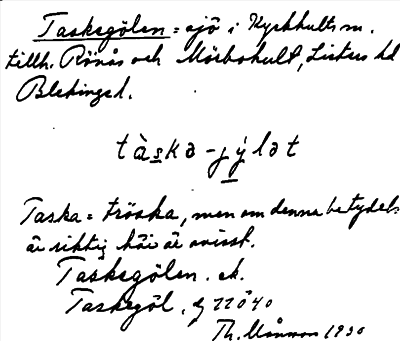 Taskegölen = sjö i Kyrkhults sn.
tillh. Rönås och Mörbokult, Listers hd
Blekinge l.
tàskə-jýlət
Taska = tröska, men om denne betydel:
är riktig här är ovisst.
Taskegölen. ek.
Taskegöl, G 22Ö40
Th. Månsson 1930